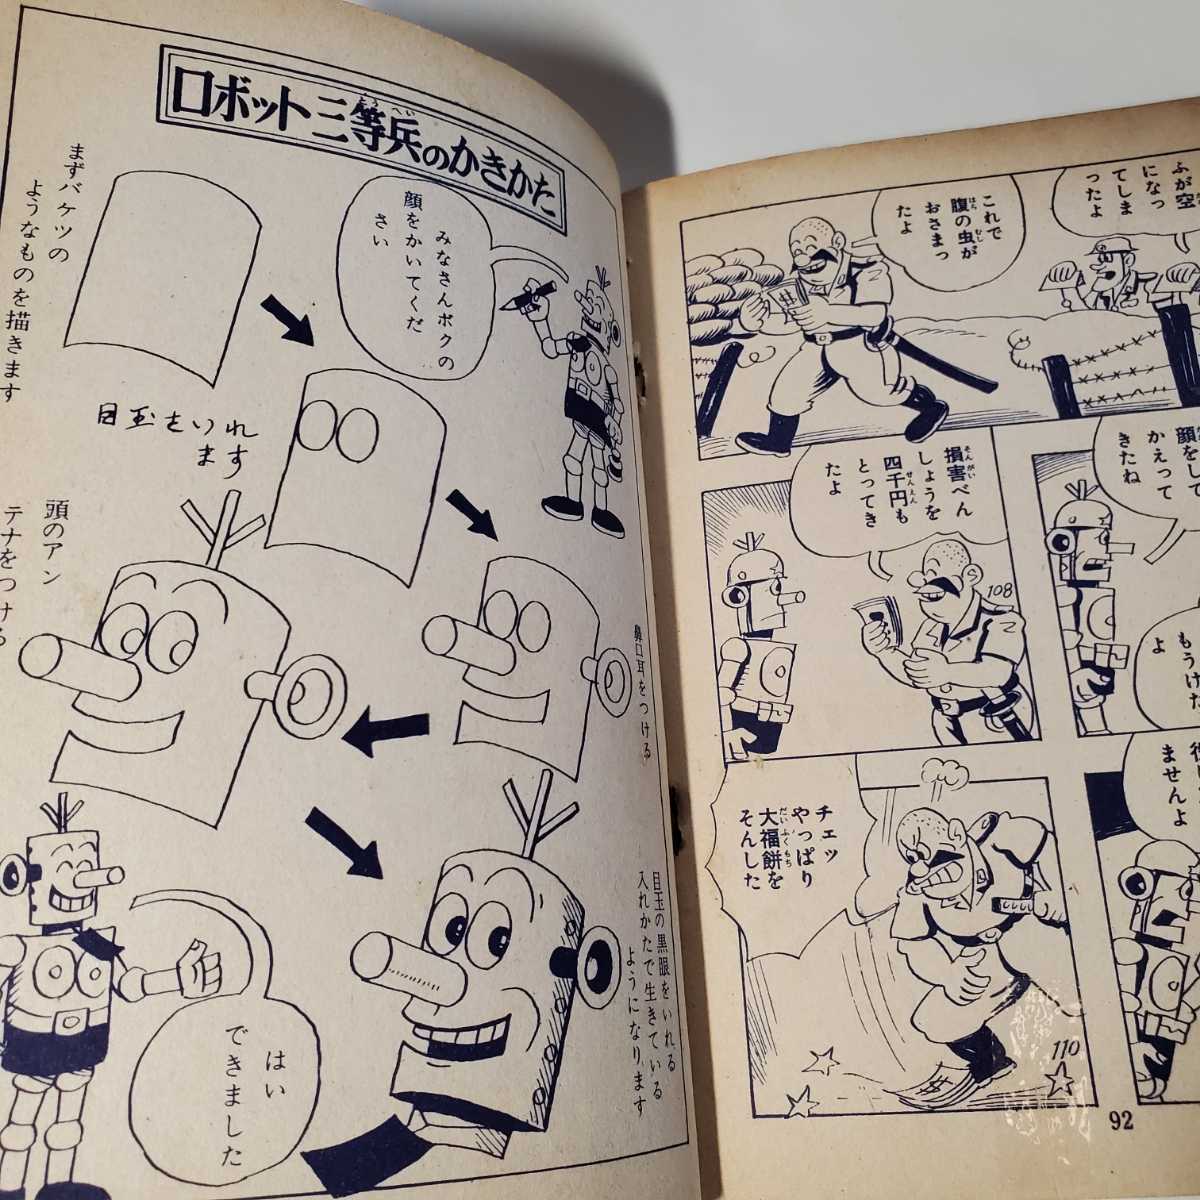 ロボット三等兵のかきかた
とうへい
みなさんボクの
顔をかいてくだ
さい
まずバケツの
ようなものを描きます
目玉をいれ
ます
鼻口耳をつける
頭のアン
テナをつける
目玉の黒眼をいれる
入れかたで生きている
ようになります
はい
できました
ふが空
になっ
てしま
ったよ
これで
腹の虫が
はら
むし
おさまっ
たよ
顔をして
かえって
きたね
損害べん
そんがい
しょうを
四千円も
せんえん
とってき
たよ
108
もうけた
よ
ませんよ
チェッ
やっぱり
大福餅を
だいふくもち
そんした
110
92